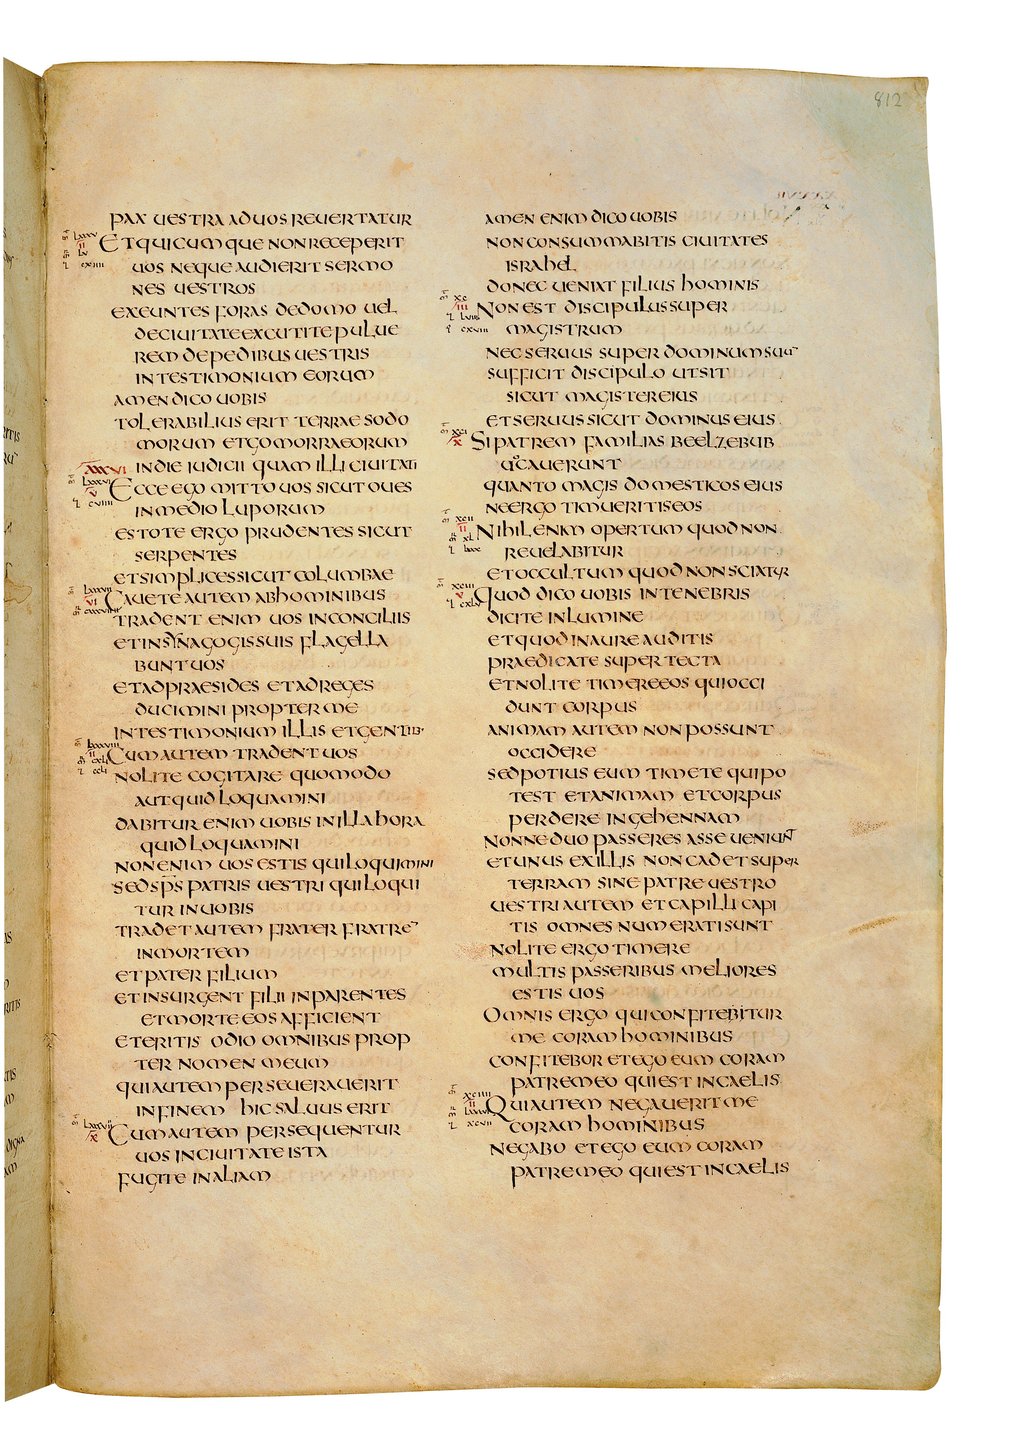 812
PAX UESTRA AD UOS REUERTATUR
ET QUICUMQUE NON RECEPERIT
UOS NEQUE AUDIERIT SERMO
NES UESTROS
EXEUNTES FORAS DE DOMO UEL
DE CIUITATE EXCUTITE PULUE
REM DE PEDIBUS UESTRIS
IN TESTIMONIUM EORUM
AMEN DICO UOBIS
TOLERABILIUS ERIT TERRAE SODO
MORUM ET GOMORRAEORUM
XXXVI IN DIE IUDICII QUAM ILLI CIUITATI
ECCE EGO MITTO UOS SICUT OUES
IN MEDIO LUPORUM
ESTOTE ERGO PRUDENTES SICUT
SERPENTES
ET SIMPLICES SICUT COLUMBAE
CAUETE AUTEM AB HOMINIBUS
TRADENT ENIM UOS IN CONCILIIS
ET IN SYNAGOGIS SUIS FLAGELLA
BUNT UOS
ET AD PRAESIDES ET AD REGES
DUCIMINI PROPTER ME
IN TESTIMONIUM ILLIS ET GENTIB·
CUM AUTEM TRADENT UOS
NOLITE COGITARE QUOMODO
AUT QUID LOQUAMINI
DABITUR ENIM UOBIS IN ILLA HORA
QUID LOQUAMINI
NON ENIM UOS ESTIS QUI LOQUIMINI
SED SP̄S PATRIS UESTRI QUI LOQUI
TUR IN UOBIS
TRADET AUTEM FRATER FRATRE¯
IN MORTEM
ET PATER FILIUM
ET INSURGENT FILII IN PARENTES
ET MORTE EOS AFFICIENT
ET ERITIS ODIO OMNIBUS PROP
TER NOMEN MEUM
QUI AUTEM PERSEUERAUERIT
IN FINEM HIC SALUUS ERIT
CUM AUTEM PERSEQUENTUR
UOS IN CIUITATE ISTA
FUGITE IN ALIAM
AMEN ENIM DICO UOBIS
NON CONSUMMABITIS CIUITATES
ISRAHEL
DONEC UENIAT FILIUS HOMINIS
NON EST DISCIPULUS SUPER
MAGISTRUM
NEC SERUUS SUPER DOMINUM SUU¯
SUFFICIT DISCIPULO UT SIT
SICUT MAGISTER EIUS
ET SERUUS SICUT DOMINUS EIUS
SI PATREM FAMILIAS BEELZEBUB
UOCAUERUNT
QUANTO MAGIS DOMESTICOS EIUS
NE ERGO TIMUERITIS EOS
NIHIL ENIM OPERTUM QUOD NON
REUELABITUR
ET OCCULTUM QUOD NON SCIATUR
QUOD DICO UOBIS IN TENEBRIS
DICITE IN LUMINE
ET QUOD IN AURE AUDITIS
PRAEDICATE SUPER TECTA
ET NOLITE TIMERE EOS QUI OCCI
DUNT CORPUS
ANIMAM AUTEM NON POSSUNT
OCCIDERE
SED POTIUS EUM TIMETE QUI PO
TEST ET ANIMAM ET CORPUS
PERDERE IN GEHENNAM
NONNE DUO PASSERES ASSE UENIUNT
ET UNUS EX ILLIS NON CADET SUPER
TERRAM SINE PATRE UESTRO
UESTRI AUTEM ET CAPILLI CAPI
TIS OMNES NUMERATI SUNT
NOLITE ERGO TIMERE
MULTIS PASSERIBUS MELIORES
ESTIS UOS
OMNIS ERGO QUI CONFITEBITUR
ME CORAM HOMINIBUS
CONFITEBOR ET EGO EUM CORAM
PATRE MEO QUI EST IN CAELIS
QUI AUTEM NEGAUERIT ME
CORAM HOMINIBUS
NEGABO ET EGO EUM CORAM
PATRE MEO QUI EST IN CAELIS